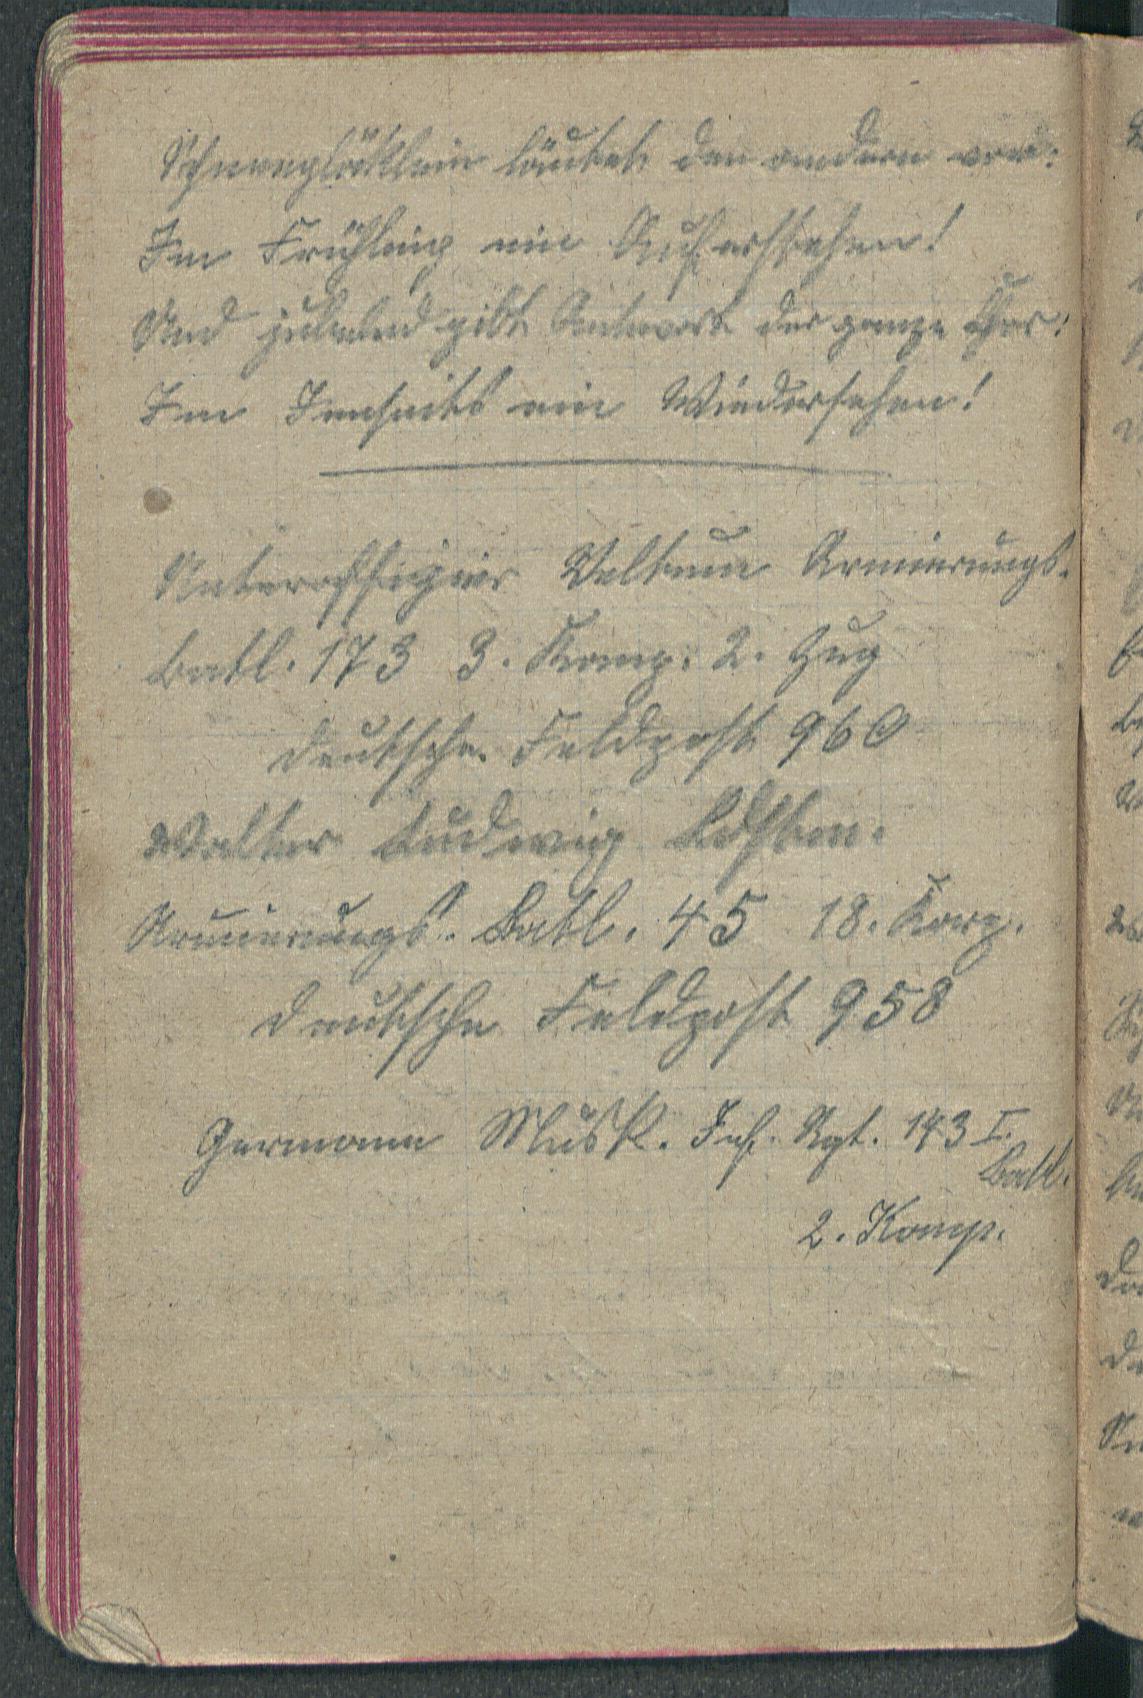 Schneeglöcklein läutet den andern vor:
Im Frühling ein Auferstehen!
Und jubelnd gibt Antwort der ganze Chor:
Im Jenseits ein Wiedersehen!
Unteroffizier Veltum Armierungs-
Batl. 173 3. Komp. 2. Zug
Deutsche Feldpost 960
Walter Ludwig Ldstm.
Armierungs-Batl. 45 18. Korp.
Deutsche Feldpost 958
Germann Musk. Inf. Rgt. 143 I.
Batl.
2. Komp.